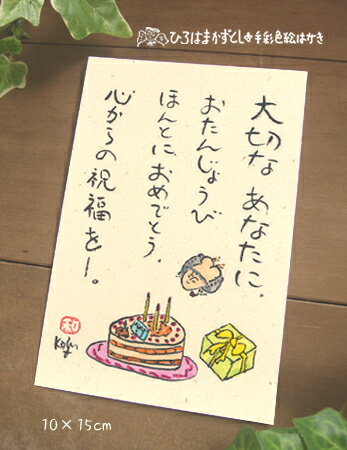 ひろはまかずとし 手彩色絵はがき
大切な あなたに.
おたんじょうび
ほんとに、おめでとう.
心からの祝福を―。
和
Kazu
10×15cm